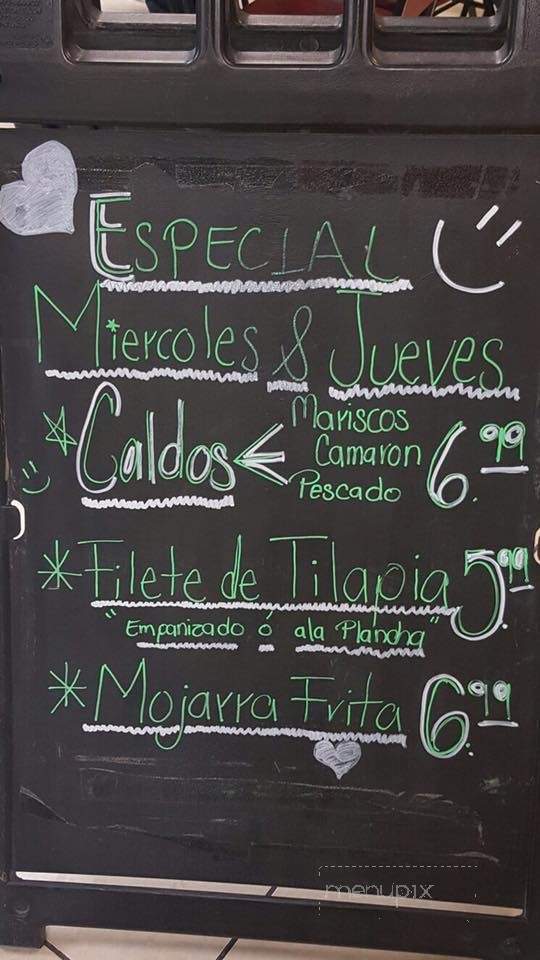 ESPECIAL
Miercoles & Jueves
Caldos
Mariscos
Camaron
Pescado
6.99
Filete de Tilapia 5.99
"Empanizado ó ala Plancha"
Mojarra Frita 6.99
menupix